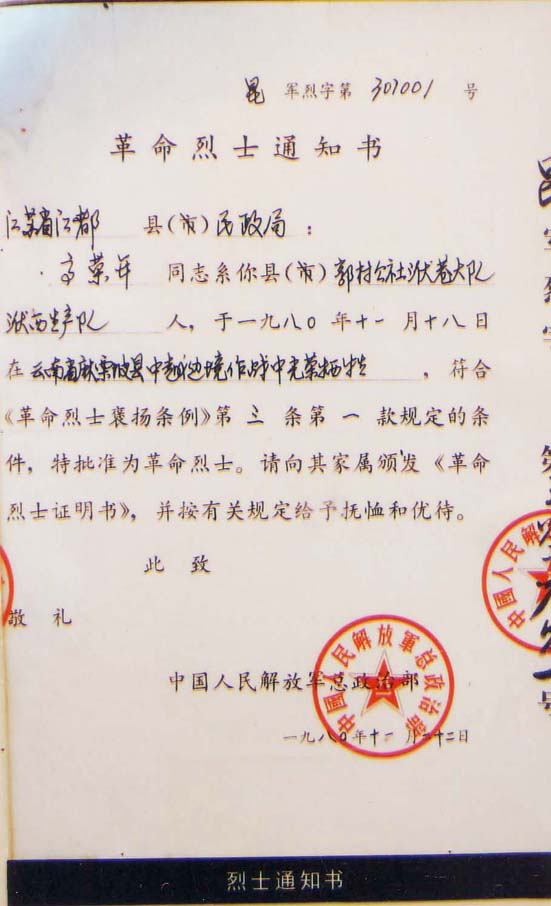 昆 军烈字第 301001 号
革命烈士通知书
江苏省江都 县(市)民政局:
高荣年 同志系你县(市)郭村公社洑巷大队
洑西生产队 人,于一九八〇年十一月十八日
在云南省麻栗坡县中越边境作战中光荣牺牲,符合
《革命烈士褒扬条例》第三条第一款规定的条
件,特批准为革命烈士。请向其家属颁发《革命
烈士证明书》,并按有关规定给予抚恤和优待。
此 致
敬 礼
中国人民解放军总政治部
一九八〇年十一月二十二日
中國人民解放軍总政治部
中國人民解
号
烈士通知书